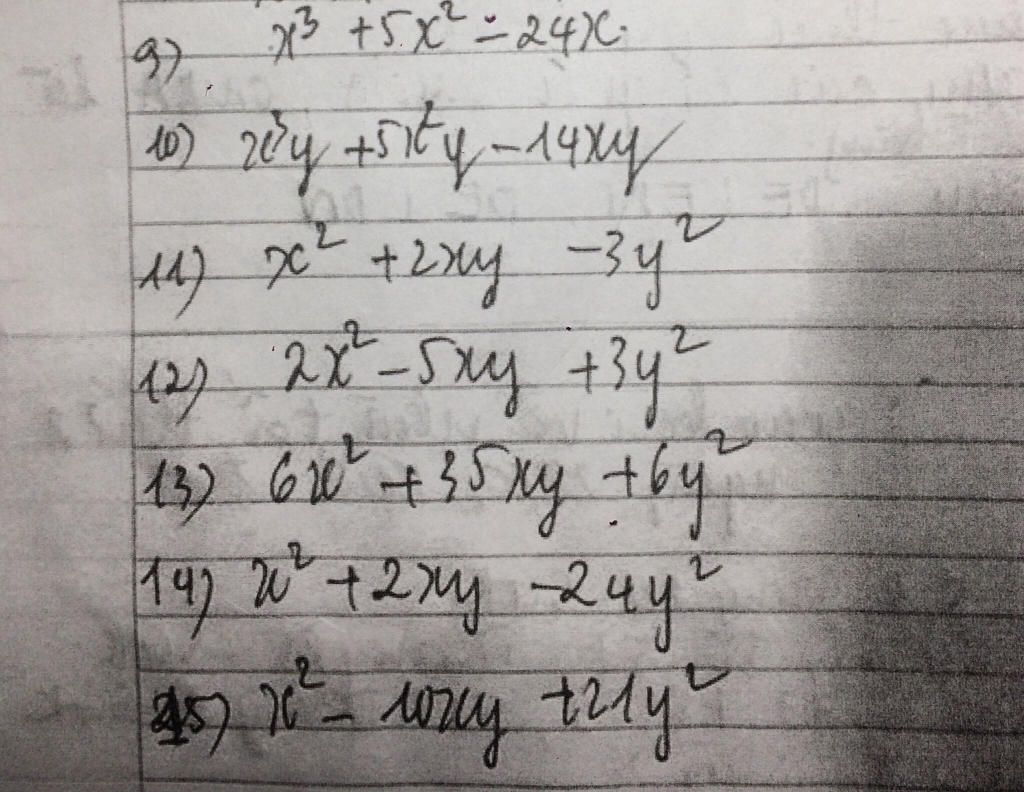 9) x³ + 5x² - 24x.
10) x³y + 5x²y - 14xy
11) x² + 2xy - 3y²
12) 2x² - 5xy + 3y²
13) 6x² + 35xy + 6y²
14) x² + 2xy - 24y²
15) x² - 10xy + 21y²